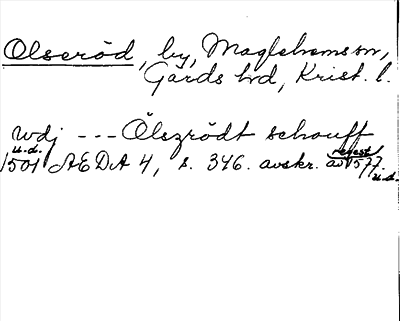 Olseröd, by, Maglehems sn,
Gärds hd, Krist. l.
wdj --- Ölszrödt schouff
u.d.
1501 AEDA 4, s. 346. avskr. av 1577
regest
u.d.